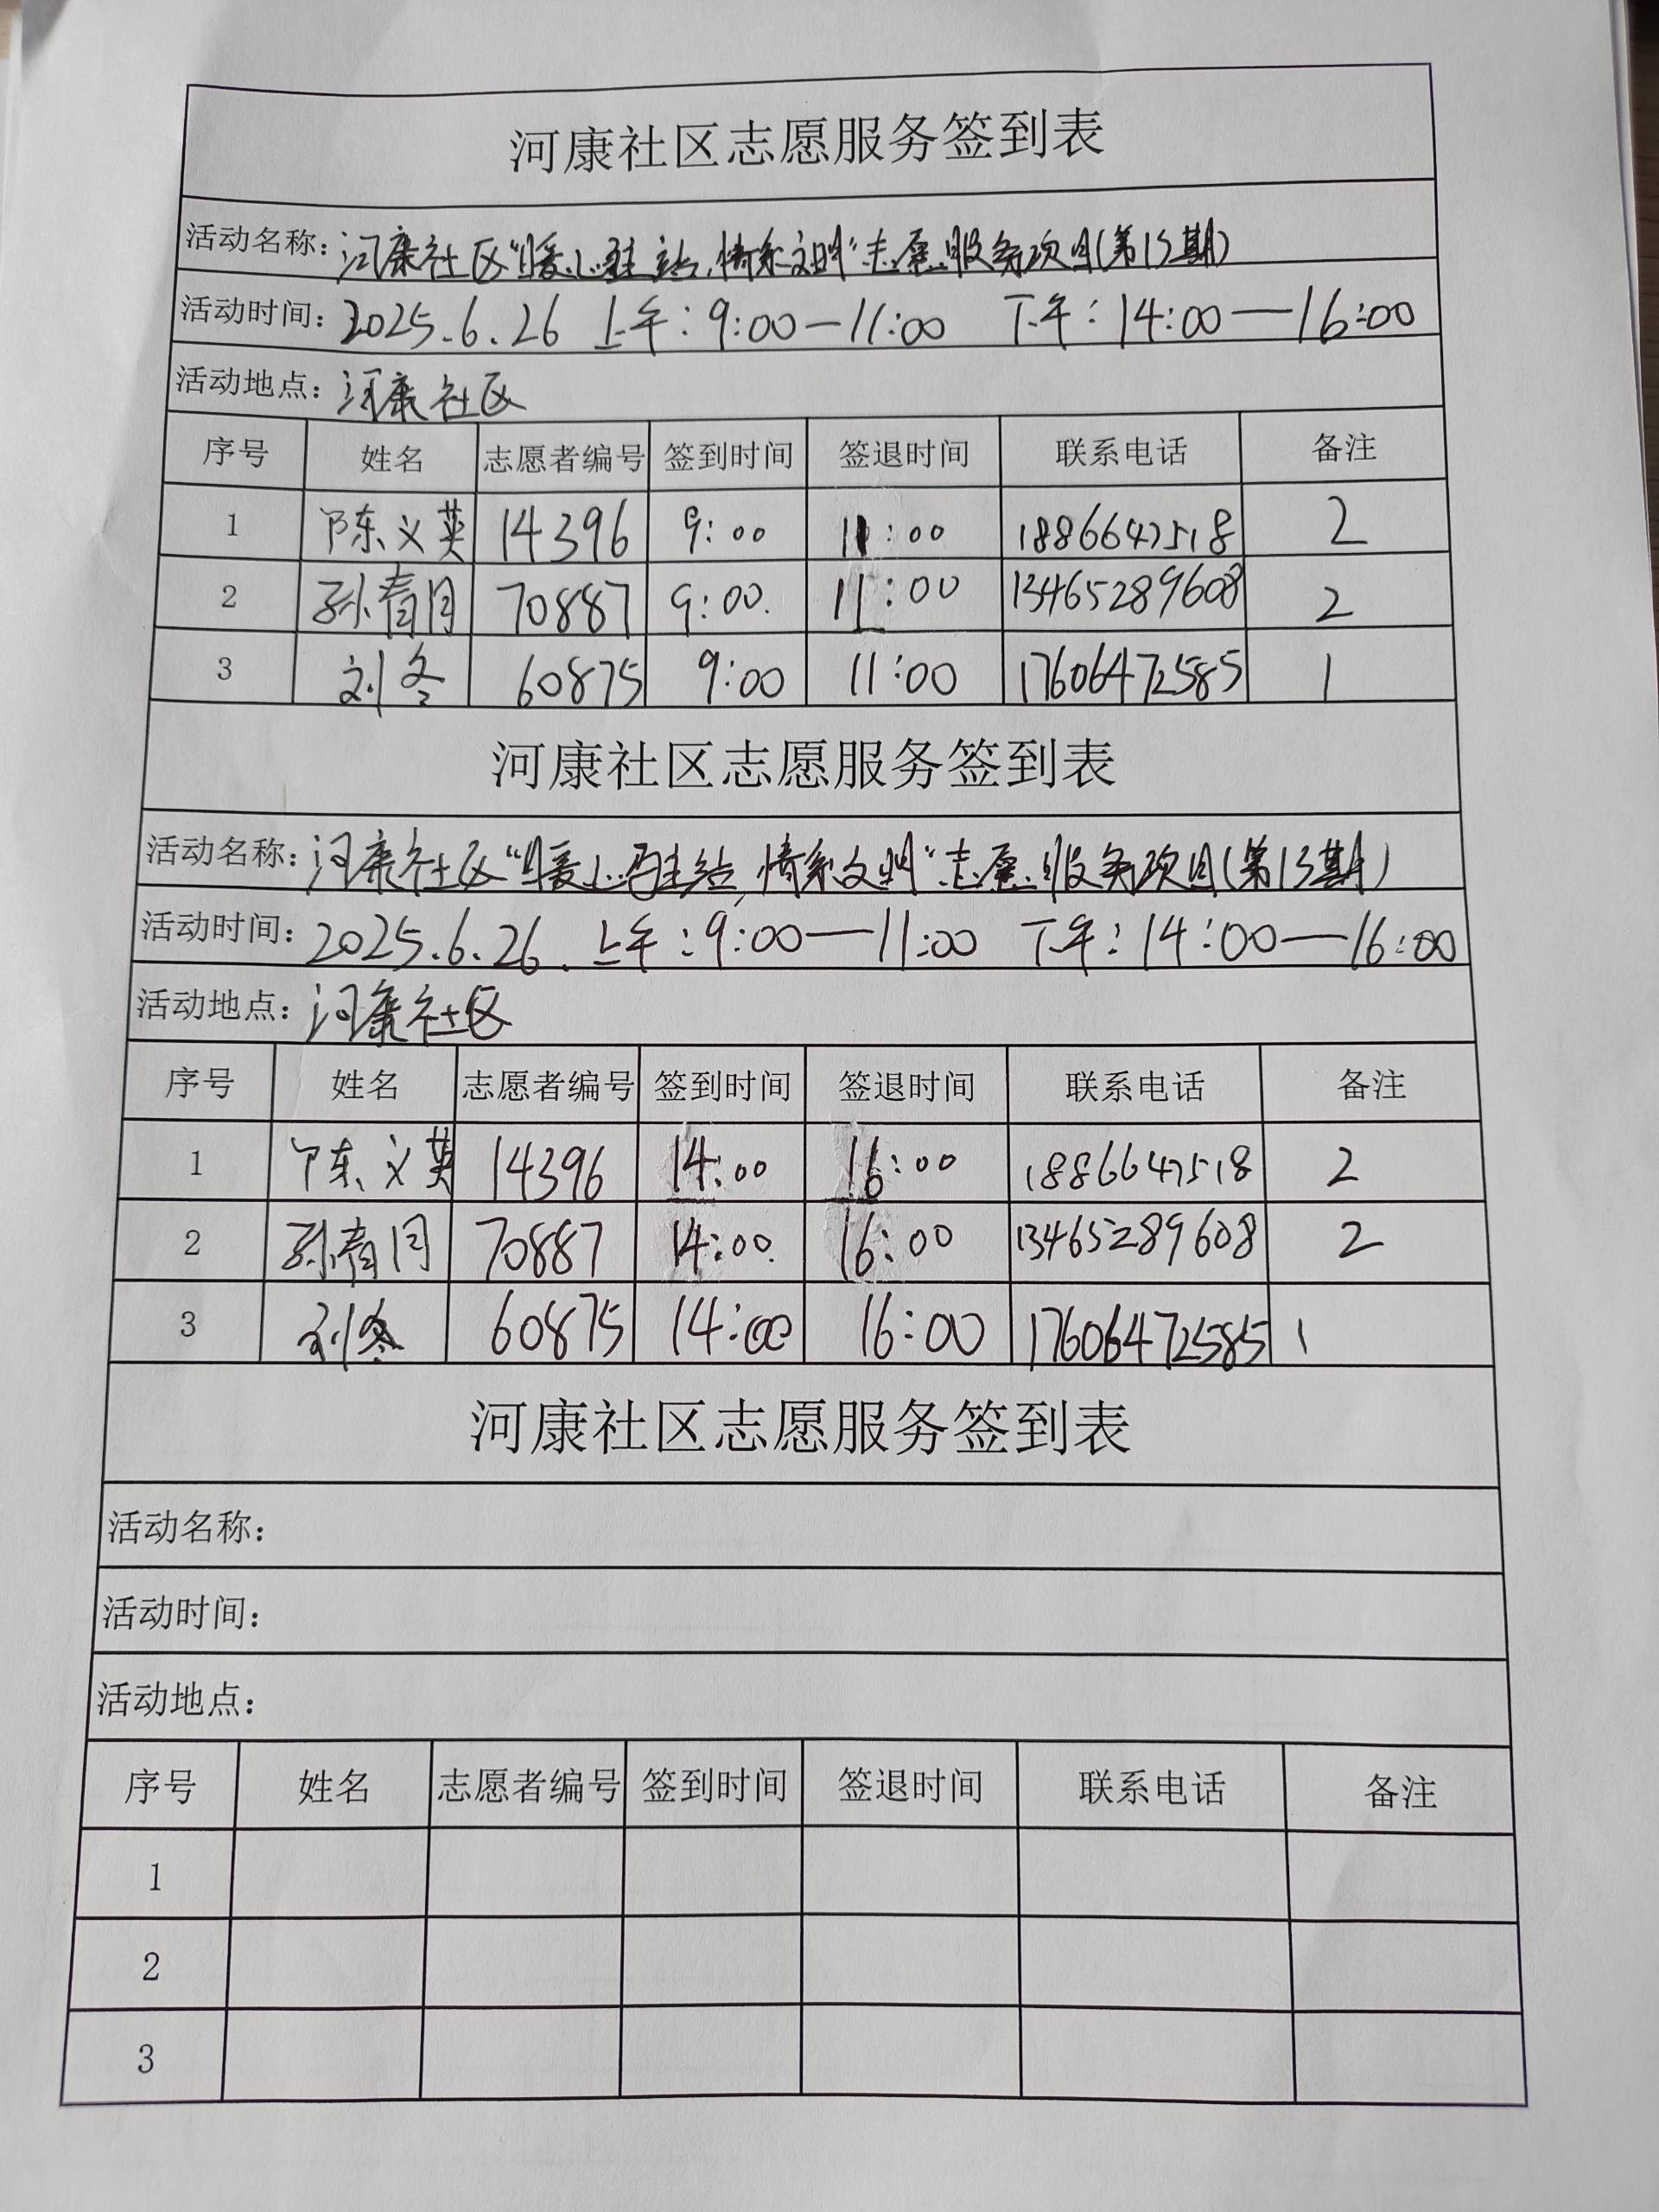 河康社区志愿服务签到表
活动名称：河康社区“暖心驻站，情系文明”志愿服务项目（第13期）
活动时间：2025.6.26 上午：9:00—11:00 下午：14:00—16:00
活动地点：河康社区
序号 姓名 志愿者编号 签到时间 签退时间 联系电话 备注
1 陈义英 14396 9:00 11:00 1886647518 2
2 孙春月 70887 9:00. 11:00 13465289608 2
3 刘冬 60875 9:00 11:00 17606472585 1
河康社区志愿服务签到表
活动名称：河康社区“暖心驻站，情系文明”志愿服务项目（第13期）
活动时间：2025.6.26. 上午：9:00—11:00 下午：14:00—16:00
活动地点：河康社区
序号 姓名 志愿者编号 签到时间 签退时间 联系电话 备注
1 陈义英 14396 14:00 16:00 1886647518 2
2 孙春月 70887 14:00. 16:00 13465289608 2
3 刘冬 60875 14:00 16:00 17606472585 1
河康社区志愿服务签到表
活动名称：
活动时间：
活动地点：
序号 姓名 志愿者编号 签到时间 签退时间 联系电话 备注
1
2
3